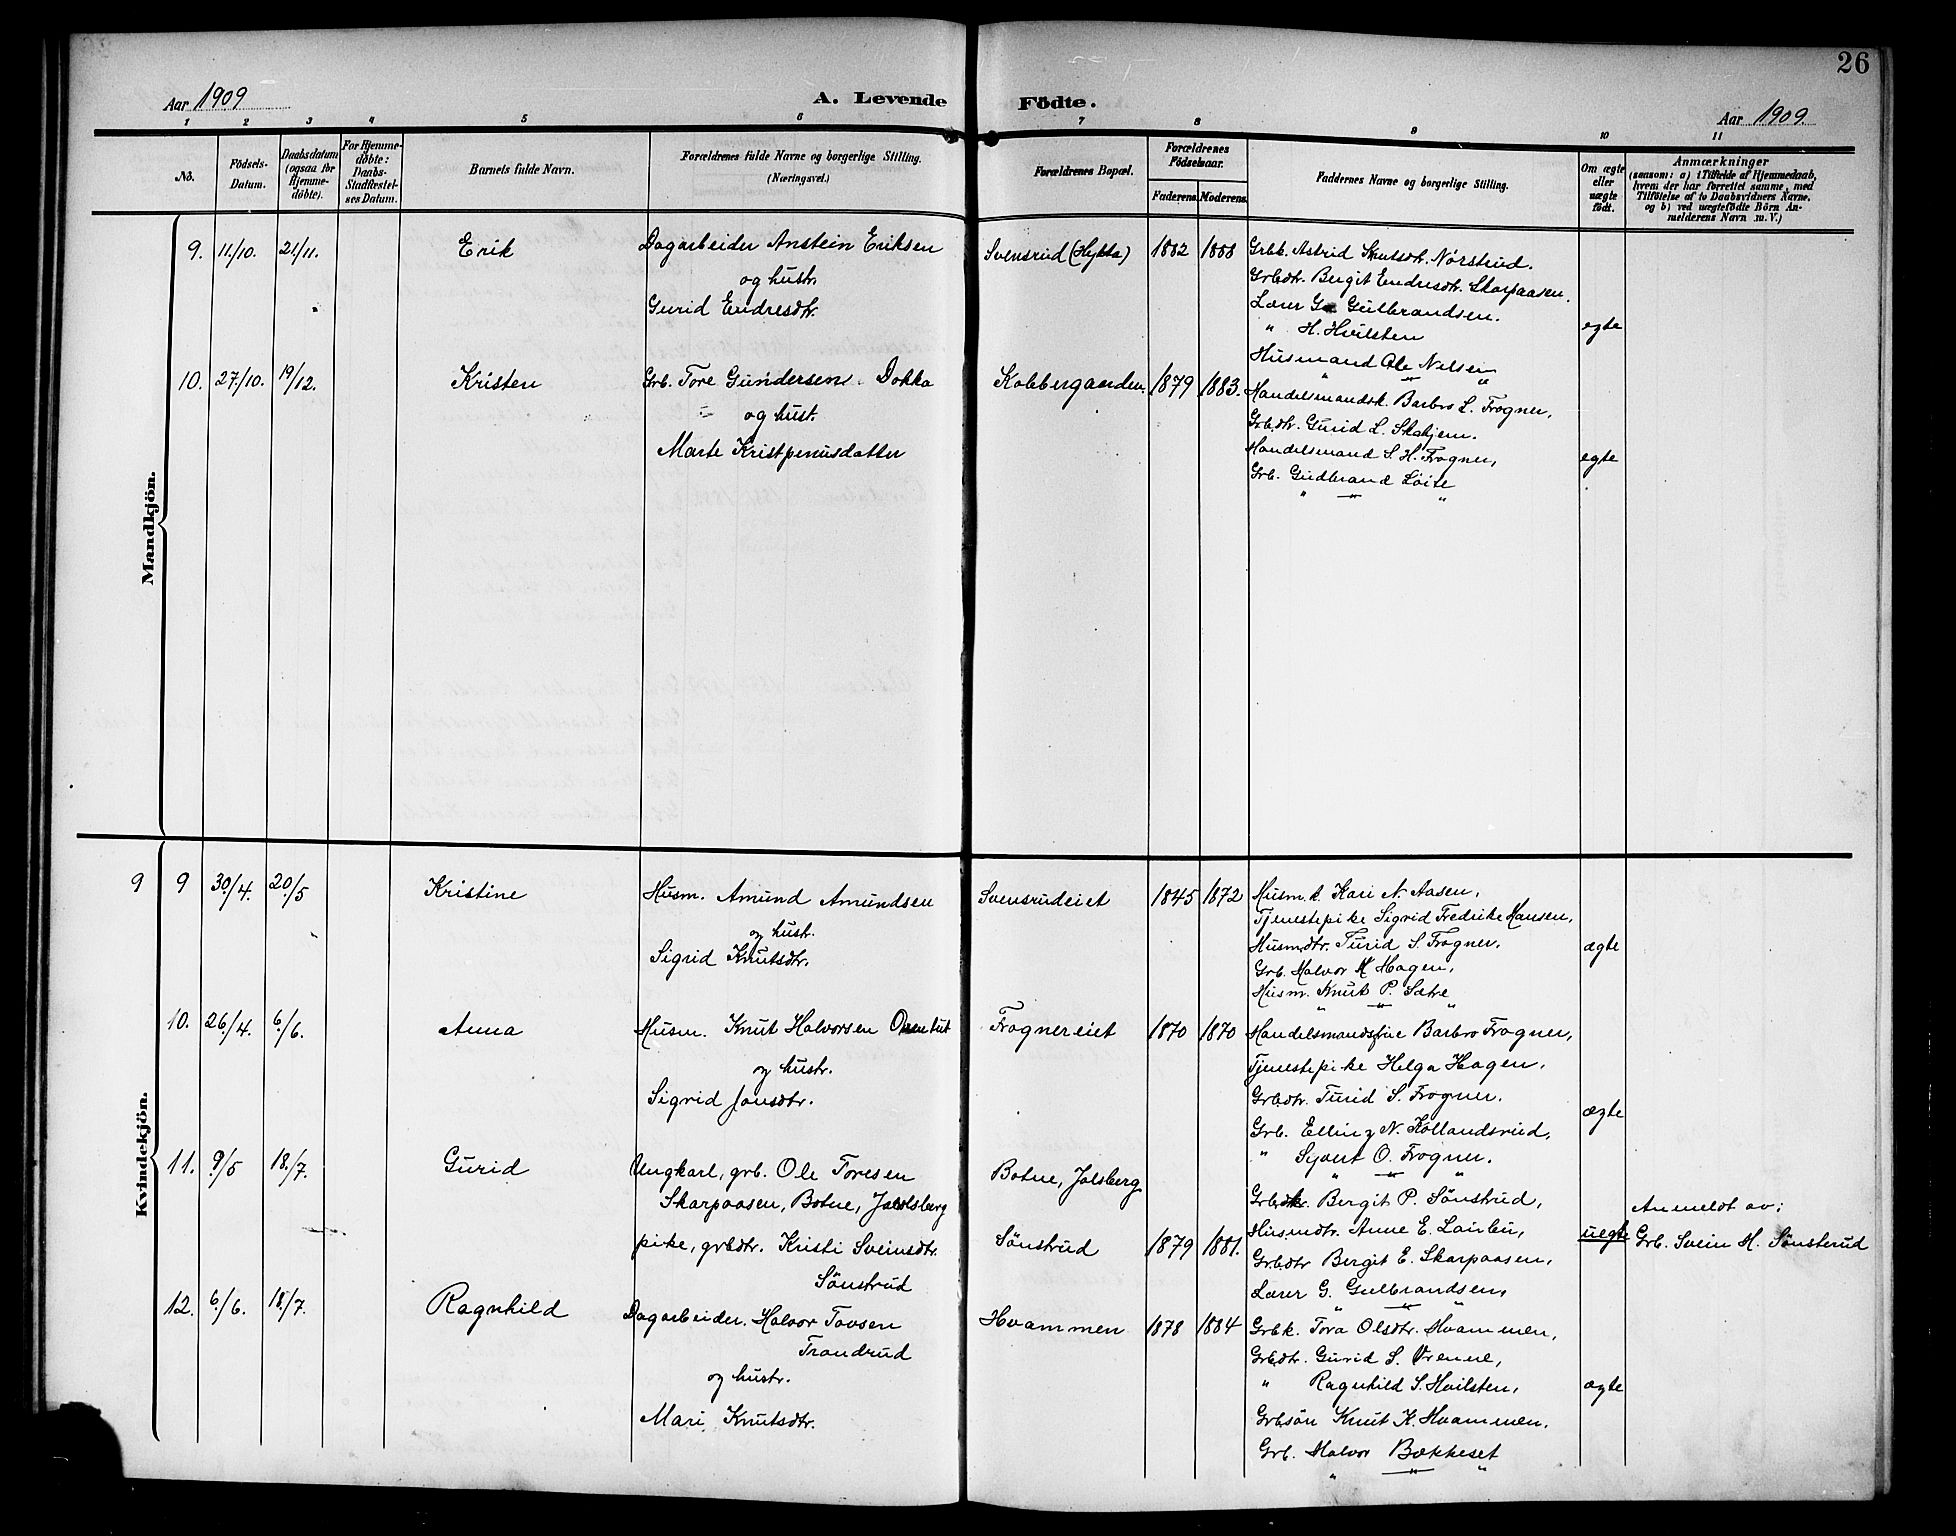 26
Aar 1909
A. Levende Födte.
Aar 1909.
1 2 3 4 5 6 7 8 9 10 11
No.
Födsels-
Datum.
Daabsdatum
(ogsaa for
Hjemme-
döbte).
For Hjemme-
døbte:
Daabs-
Stadfæstel-
ses Datum.
Barnets fulde Navn.
Forældrenes fulde Navne og borgerlige Stilling.
(Næringsvei.)
Forældrenes Bopæl.
Forældrenes
Födselsaar.
Faderens. Moderens.
Faddernes Navne og borgerlige Stilling.
Om ægte
eller
uægte
födt.
Anmærkninger
(saasom: a) i Tilfælde af Hjemmedaab,
hvem der har forrettet samme, med
Tilföielse af to Daabsvidners Navne.
og b) ved uægtefödte Börn An-
melderens Navn m. V.)
Mandkjön.
9. 11/10. 21/11. Erik
Dagarbeider Anstein Eriksen
og hustr.
Gurid Endresdtr.
Svensrud (Hytta) 1882 1888
Grbk. Astrid Knutsdtr. Nørstrud.
Grbdtr. Bergit Endresdtr. Skarpaasen.
Lærer G. Gulbrandsen.
" H. Hvilsten
Husmand Ole Nelsen
" " "
egte
10. 27/10. 19/12. Kristen
Grb. Tore Gundersen Dokka
og hust.
Marte Kristpenusdatter
Kobbergaarden. 1879 1883.
Handelsmandsk. Barbro L. Frogner,
Grbdtr. Gurid L. Skahjem.
Handelsmand S. H. Frogner,
Grb. Gudbrand Löite
" " "
egte
Kvindekjön.
9 9 30/4. 20/5 Kristine
Husm. Amund Amundsen
og hustr.
Sigrid Knutsdtr.
Svensrudeiet 1845 1872
Husm.k. Kari N. Aasen,
Tjenestepike Sigrid Fredrike Hansen,
Husmdtr. Turid S. Frogner.
Grb. Halvor H Hagen,
Husm. Knut P. Sætre
" " "
ægte
10. 26/4. 6/6. Anna
Husm. Knut Halvorsen
og hustr.
Sigrid Jonsdtr.
Frognereiet 1870 1870
Handelsmandsfrue Barbro Frogner,
Tjenestepike Helga Hagen.
Grbdtr. Turid S. Frogner.
Grb. Elling N. Kollandsrud,
" Syvert O. Frogner.
" " "
ægte
11. 9/5 18/7. Gurid
Ungkarl, grb. Ole Toresen
Skarpaasen, Botne, Jolsberg
pike, grbdtr. Kristi Sveinsdtr.
Sönstrud
Botne, Jolsberg
Sönstrud 1879 1881.
Grbk. Bergit P. Sönstrud,
Husmdtr. Anne E. Lairbu,
Grbdtr Bergit E. Skarpaasen,
Lærer G. Gulbrandsen,
" " "
uegte
Anmeldt av:
Grb. Svein H. Sönsterud
12. 6/6. 18/7. Ragnhild
Dagarbeider. Halvor Tovsen
Trondrud
og hustr.
Mari Knutsdtr.
Hvammen 1878 1884
Grbk. Tora Olsdtr. Hvammen,
Grbdtr. Gurid S. Vrenne,
" Ragnhild S. Hvilsten,
Grbsön Knut K. Hvammen.
Grb. Halvor Bækkeset
" " "
ægte